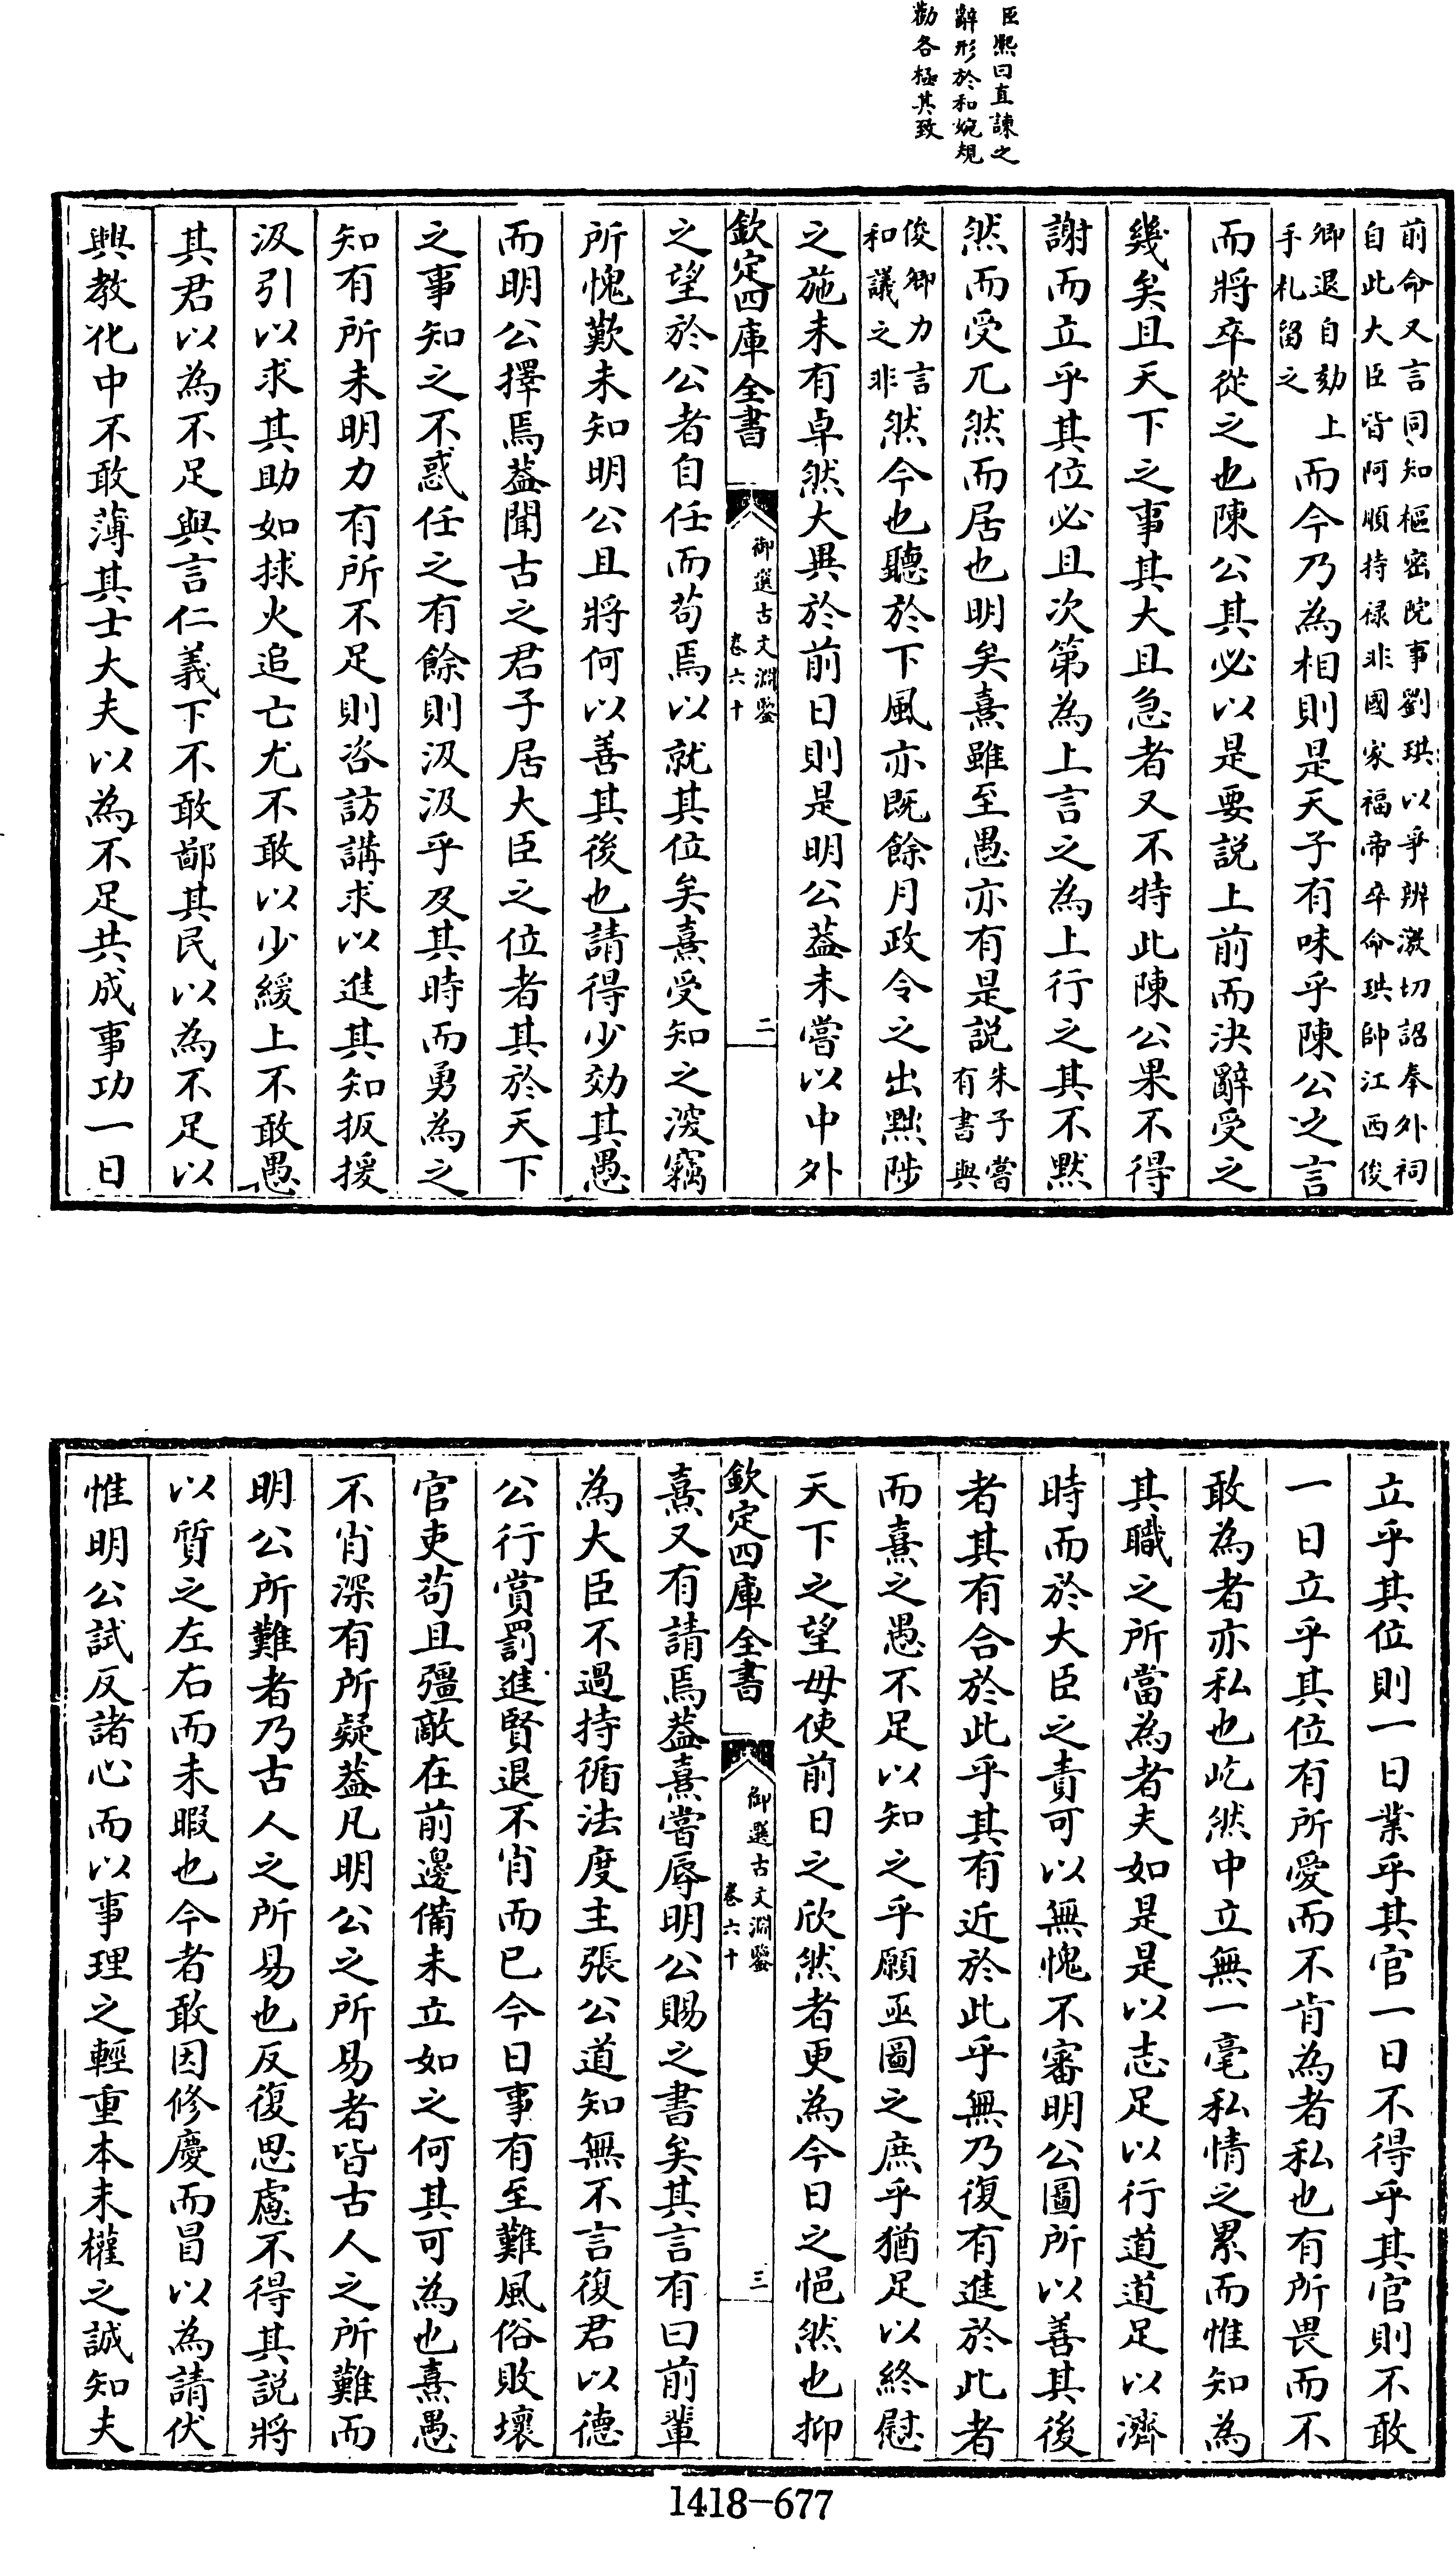 臣熙曰直諫之
辭形於和婉規
勸各極其致
前命又言同知樞密院事劉珙以爭辨激切詔奉外祠
自此大臣皆阿順持禄非國家福帝卒命珙帥江西俊
卿退自劾上
手札留之
而今乃為相則是天子有味乎陳公之言
而將卒從之也陳公其必以是要説上前而決辭受之
幾矣且天下之事其大且急者又不特此陳公果不得
謝而立乎其位必且次第為上言之為上行之其不默
然而受兀然而居也明矣熹雖至愚亦有是説
朱子嘗
有書與
俊卿力言
和議之非
然今也聽於下風亦既餘月政令之出黜陟
之施未有卓然大異於前日則是明公葢未嘗以中外
欽定四庫全書
御選古文淵鑒
卷六十
二
之望於公者自任而苟焉以就其位矣熹受知之深竊
所愧歎未知明公且將何以善其後也請得少効其愚
而明公擇焉葢聞古之君子居大臣之位者其於天下
之事知之不惑任之有餘則汲汲乎及其時而勇為之
知有所未明力有所不足則咨訪講求以進其知扳援
汲引以求其助如捄火追亡尤不敢以少緩上不敢愚
其君以為不足與言仁義下不敢鄙其民以為不足以
興教化中不敢薄其士大夫以為不足共成事功一日
立乎其位則一日業乎其官一日不得乎其官則不敢
一日立乎其位有所愛而不肯為者私也有所畏而不
敢為者亦私也屹然中立無一毫私情之累而惟知為
其職之所當為者夫如是是以志足以行道道足以濟
時而於大臣之責可以無愧不審明公圖所以善其後
者其有合於此乎其有近於此乎無乃復有進於此者
而熹之愚不足以知之乎願亟圖之庶乎猶足以終慰
天下之望毋使前日之欣然者更為今日之悒然也抑
欽定四庫全書
御選古文淵鑒
卷六十
三
熹又有請焉葢熹嘗辱明公賜之書矣其言有曰前輩
為大臣不過持循法度主張公道知無不言復君以德
公行賞罰進賢退不肖而已今日事有至難風俗敗壞
官吏苟且彊敵在前邊備未立如之何其可為也熹愚
不肖深有所疑葢凡明公之所易者皆古人之所難而
明公所難者乃古人之所易也反復思慮不得其説將
以質之左右而未暇也今者敢因修慶而冒以為請伏
惟明公試反諸心而以事理之輕重本末權之誠知夫
1418-677